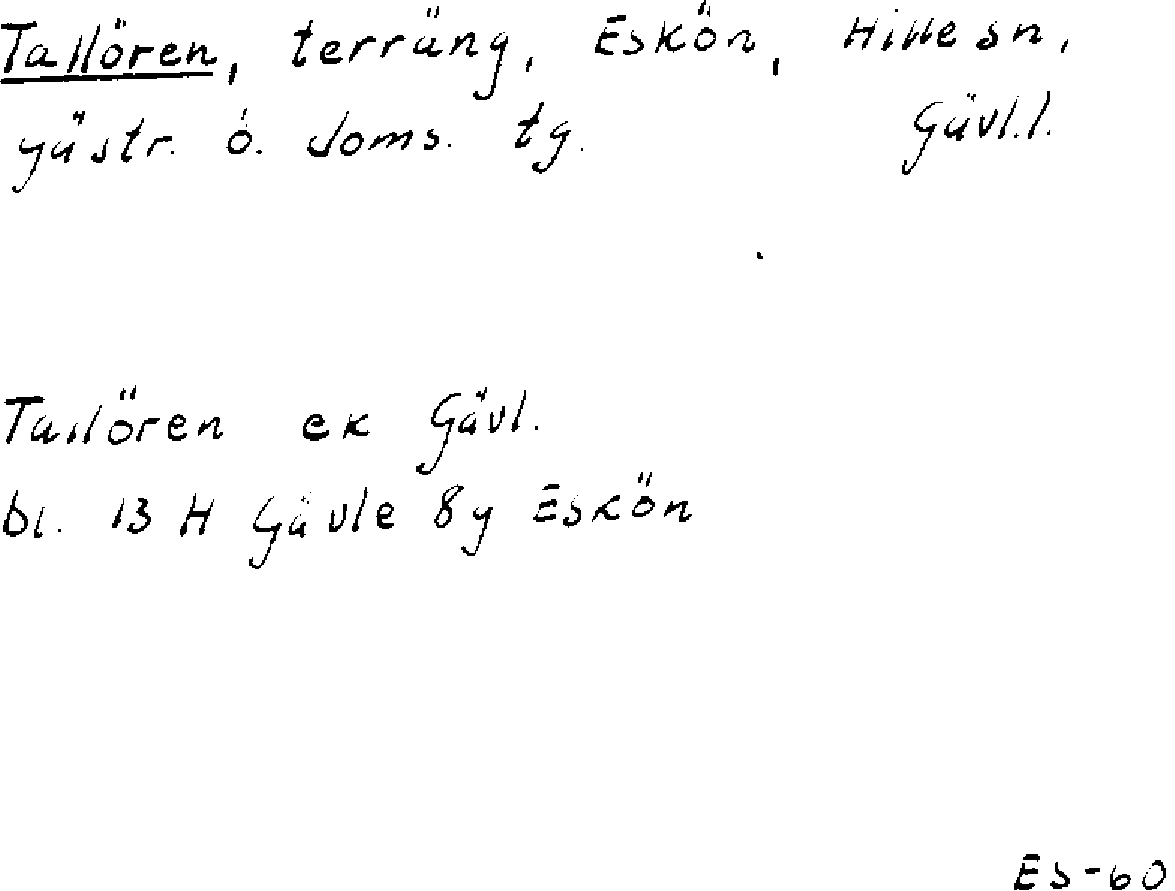 Tallören, terräng, Eskön, Hille sn,
gästr. ö. doms. tg. Gävl.l.
Tallören ek Gävl.
bl. 13 H Gävle 8g Eskön
ES-60